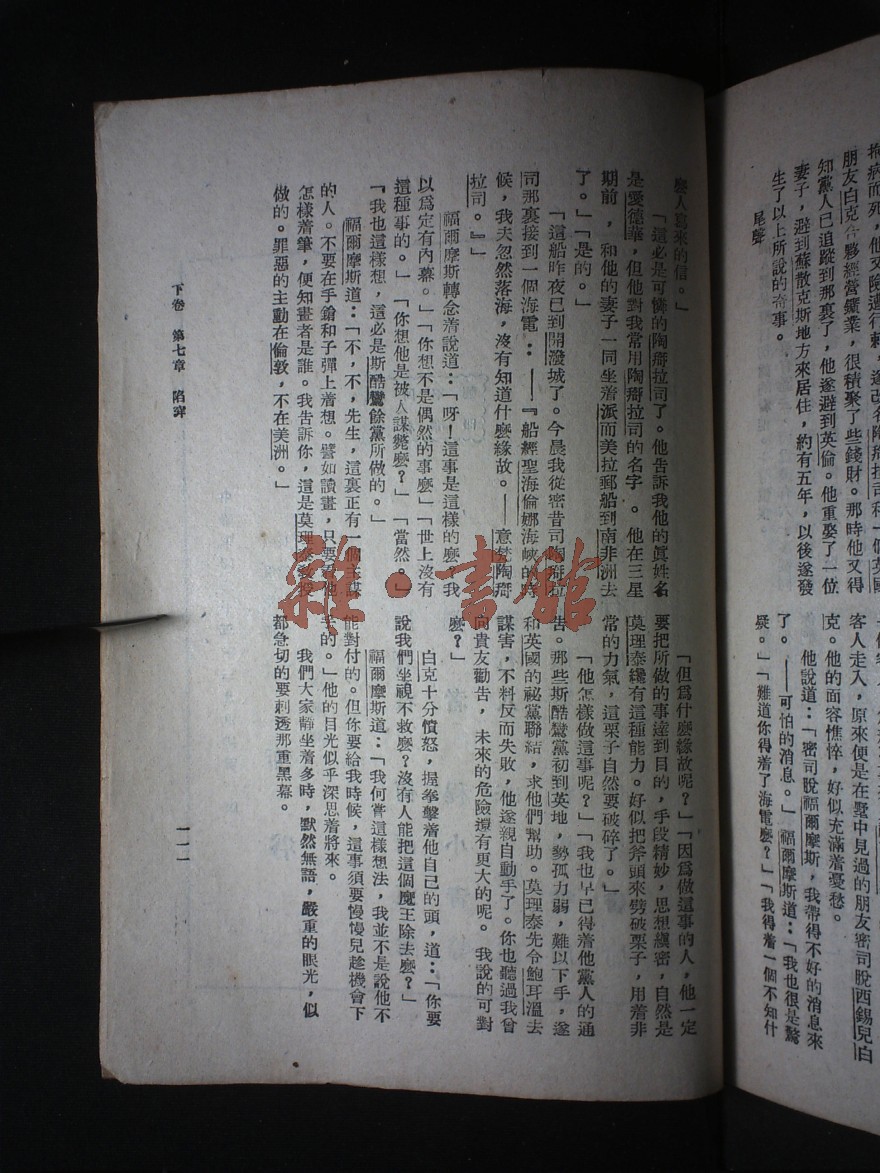 抱病而死，他又險遭行刺，遂改名陶
朋友白克合夥經營鑛業，很積聚了些錢財。那時他又得
知黨人已追蹤到那裏了，他遂避到英倫。他重娶了一位
妻子，避到蘇散克斯地方來居住，約有五年，以後遂發
生了以上所說的奇事。
尾聲
客人走入，原來便是在墅中見過的朋友密司脫西錫兒白
克。他的面容憔悴，好似充滿着憂愁。
他說道：「密司脫福爾摩斯，我帶得不好的消息來
了。——可怕的消息。」福爾摩斯道：「我也很是驚
疑。」「難道你得着了海電麽？」「我得着一個不知什
麽人寫來的信。」
「這必是可憐的陶辯拉司了。他告訴我他的眞姓名
是愛德華，但他對我常用陶辯拉司的名字。他在三星
期前，和他的妻子一同坐着派而美拉郵船到南非洲去
了。」「是的。」
「這船昨夜已到開潑城了。今晨我從密昔司陶辯拉
司那裏接到一個海電：——『船經聖海倫娜海峽的時
候，我夫忽然落海，沒有知道什麽緣故。——意梵陶辯
拉司。』」
福爾摩斯轉念着說道：「呀！這事是這樣的麽？我
以爲定有內幕。」「你想不是偶然的事麽」「世上沒有
這種事的。」「你想他是被人謀斃麽？」「當然。」
「我也這樣想，這必是斯酷鸞餘黨所做的。」
福爾摩斯道：「不，不，先生，這裏正有一個主謀
的人。不要在手鎗和子彈上着想。譬如讀畫，只要看他
怎樣着筆，便知畫者是誰。我告訴你，這是莫理泰教授
做的。罪惡的主動在倫敦，不在美洲。」
「但爲什麽緣故呢？」「因爲做這事的人，他一定
要把所做的事達到目的，手段精妙，思想縝密，自然是
莫理泰纔有這種能力。好似把斧頭來劈破栗子，用着非
常的力氣，這栗子自然要破碎了。」
「他怎樣做這事呢？」「我也早已得着他黨人的通
告。那些斯酷鸞黨初到英地，勢孤力弱，難以下手，遂
和英國的祕黨聯結，求他們幫助。莫理泰先令鮑耳溫去
謀害，不料反而失敗，他遂親自動手了。你也聽過我曾
向貴友勸告，未來的危險還有更大的呢。我說的可對
麽？」
白克十分憤怒，握拳擊着他自己的頭，道：「你要
說我們坐視不救麽？沒有人能把這個魔王除去麽？」
福爾摩斯道：「我何嘗這樣想法，我並不是說他不
能對付的。但你要給我時候，這事須要慢慢兒趁機會下
手的。」他的目光似乎深思着將來。
我們大家靜坐着多時，默然無語，嚴重的眼光，似
都急切的要刺透那重黑幕。
下卷 第七章 陷穽
一一一
雜·書館